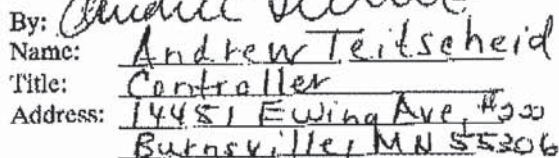 By:
Name: Andrew Teitscheid
Title: Controller
Address: 14451 Ewing Ave, #200
Burnsville, MN 55306